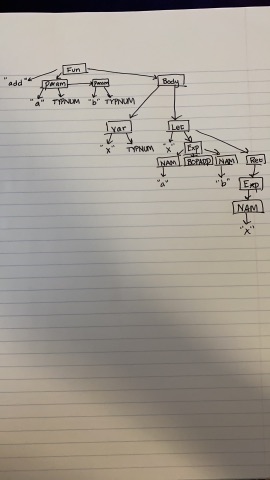 Fun
"add" Param Param Body
"a" TYPNUM "b" TYPNUM
Var Let
"x" TYPNUM "x" Exp
NAM BOPADD NAM Ret
"a" "b" Exp
NAM
"x"